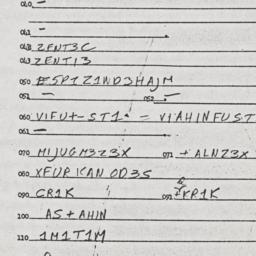 040 –
041 –
042 ZENT3C
043 ZENT13
050 E5P1Z1WD3HAJM
051 – 052 –
060 VIFUT-ST1. = VIAHINFUST
061 –
070 MIJUGM3Z3X 071 + ALNZ3X
080 XFURICAN OD3S
090 CR1K 091 KR1K
100 AS + AHIN
110 1M1T1M